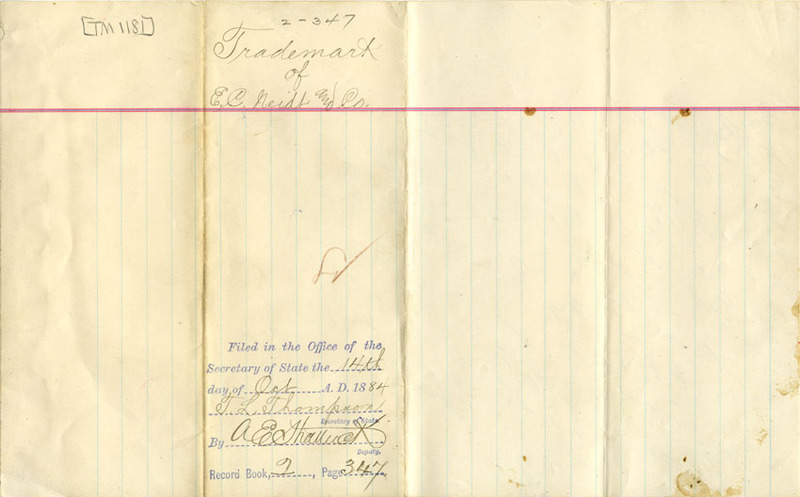 [TM 1181]
2-347
Trademark
of
E.C. Neidt and Co.
Filed in the Office of the
Secretary of State the 14th
day of Oct A. D. 1884
T. L. Thompson
Secretary of State.
By A E Shattuck
Deputy.
Record Book, 2, Page 347